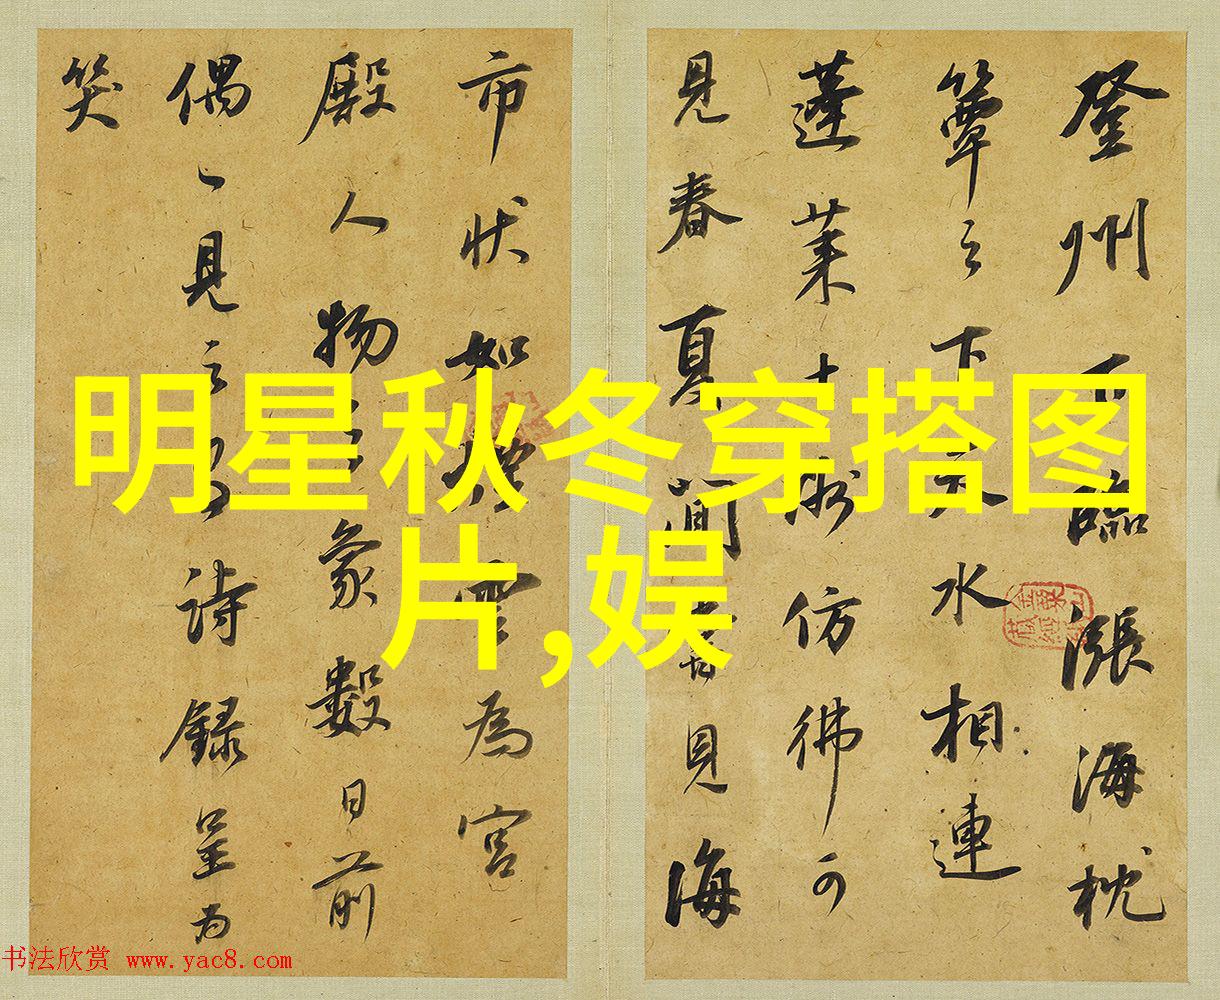 明星秋冬穿搭图
片,娱
登州下臨漲海枕
簟之下天水相連
蓬萊十洲仿彿可
見春夏間嘗見海
市狀如雲為宮
殿人物之象數日前
偶見之詩錄呈為
笑
书法欣赏 www.yac8.com